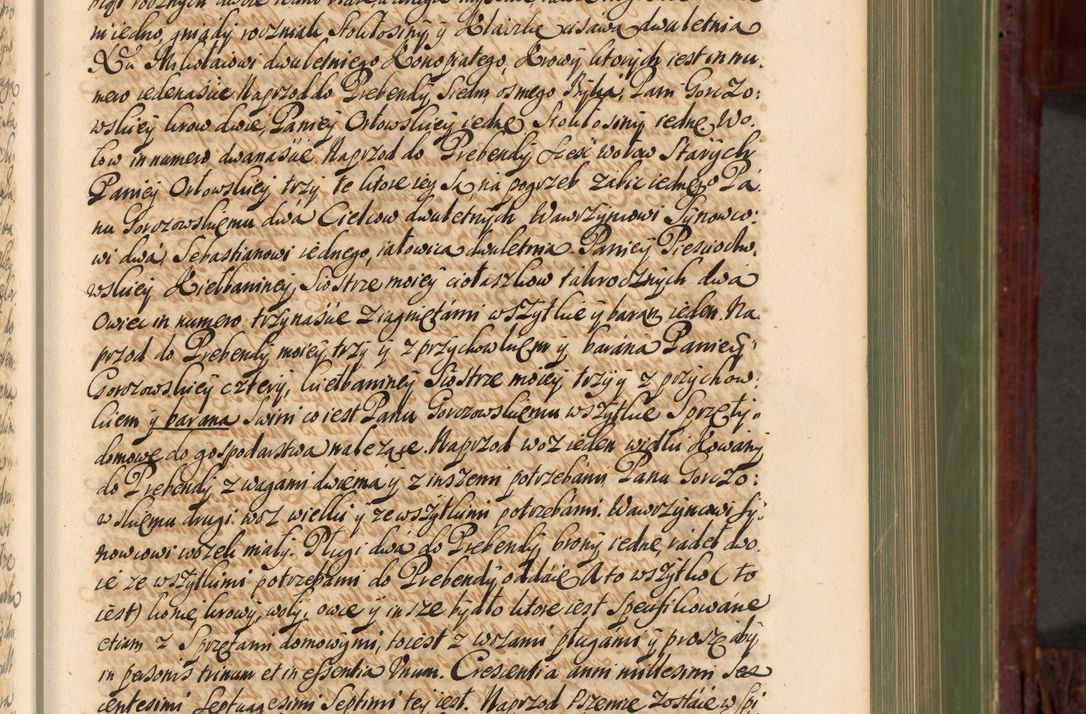 mi jedno, gniady roczniak Stokłosiny y Klaczka cisawa dwuletnia
Xu Mikołaiowi dwuletniego Konopiatego, Krowy ktorych iest in nu:
mero iedenascie Naprzod do Prebendy, siedm, osmego Byka, Pani Gorczo:
wskiey krow dwie, Paniey Orłowskiey iedne Stokłosiny iedne, Wo:
łow in numero dwanascie Naprzod do Prebendy sześć wołow Starych
Paniey Orłowskiey, trzy, te ktore iey są na pogrzeb zabić iednego Pa:
nu Gorczowskiemu dwa Ciełcow dwuletnych Wawrzyncowi Synowco:
wi dwa, Sebastianowi iednego, iałowica dwuletnia Paniey
wskiey Kiełbaniney, Siostrze moiey ciołaszkow takrocznych dwa
Owiec in numero trzynascie z iagniętami wszytkie y baran ieden. Na
przod do Prebendy moiey, trzy y z przychowkiem y barana Paniey
Gorczowskiey cztery, kiełbaniney Siostrze moiey trzy y z przychow:
kiem y barana Swini co iest Panu Gorczowskiemu wszytkie Sprzęty
domowe do gospodarstwa należące. Naprzod woz ieden wielki Kowany
do Prebendy z wagami dwiema y z inszemi potrzebami Panu Gorczo:
wskiemu drugi woz wielki y ze wszytkimi potrzebami. Wawrzyncowi Sy:
nowcowi wozek mały. Pługi dwa do Prebendy, brony iedne radeł dwo:
ie ze wszytkimi potrzebami do Prebendy oddaie A to wszytko (to
iest) konie, krowy, woły, owce y insze bydło ktore iest specifikowane
etiam z Sprzętami domowymi, to iest z wozami pługami y proszę aby
in personis trinum et in essentia unum. Crescentia anni millesimi sex
centesimi Septuagesimi Septimi tey iest. Naprzod Pszenice zostaie w Spi